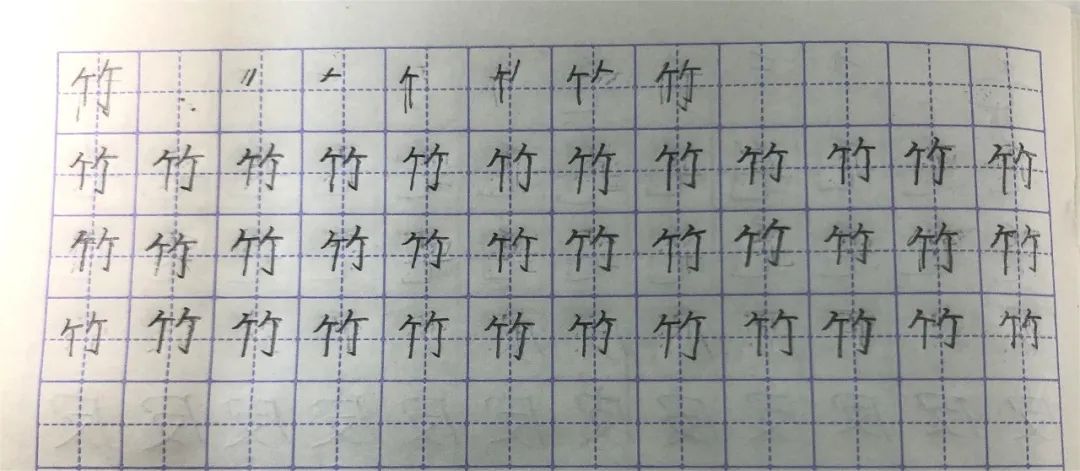 竹 竹
竹 竹 竹 竹 竹 竹 竹 竹 竹 竹 竹 竹
竹 竹 竹 竹 竹 竹 竹 竹 竹 竹 竹 竹
竹 竹 竹 竹 竹 竹 竹 竹 竹 竹 竹 竹